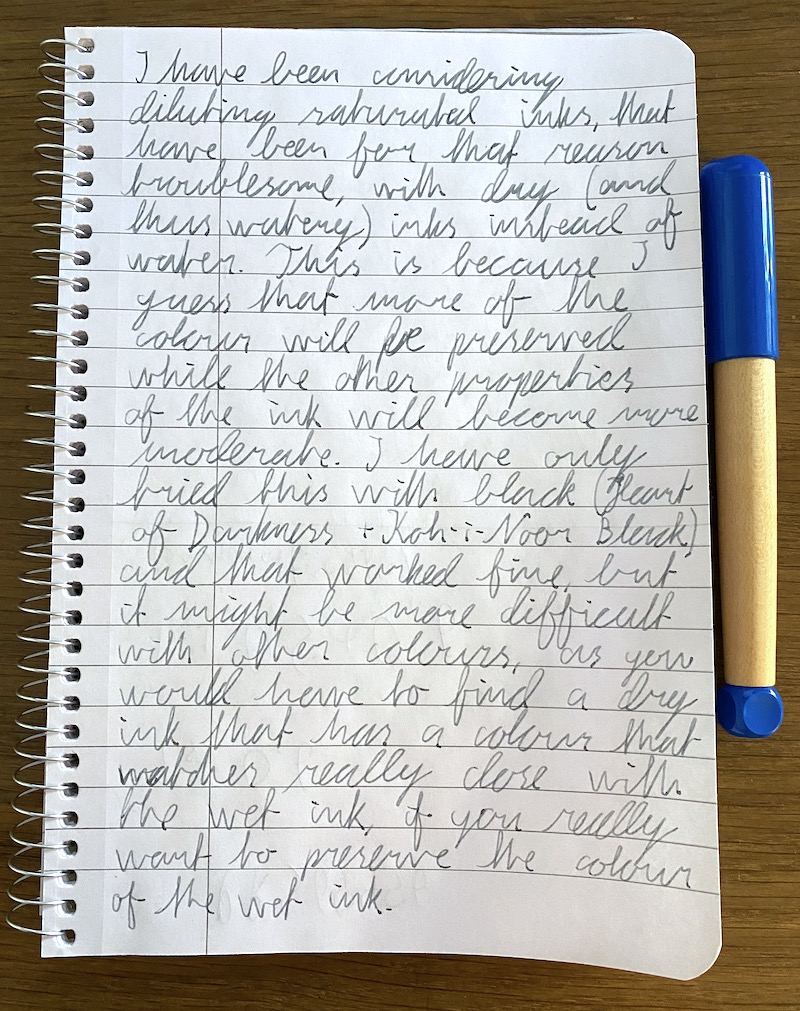 I have been considering
diluting saturated inks, that
have been for that reason
troublesome, with dry (and
thus watery) inks instead of
water. This is because I
guess that more of the
colour will be preserved
while the other properties
of the ink will become more
moderate. I have only
tried this with black (Heart
of Darkness + Koh-i-Noor Black)
and that worked fine, but
it might be more difficult
with other colours, as you
would have to find a dry
ink that has a colour that
matches really close with
the wet ink, if you really
want to preserve the colour
of the wet ink.